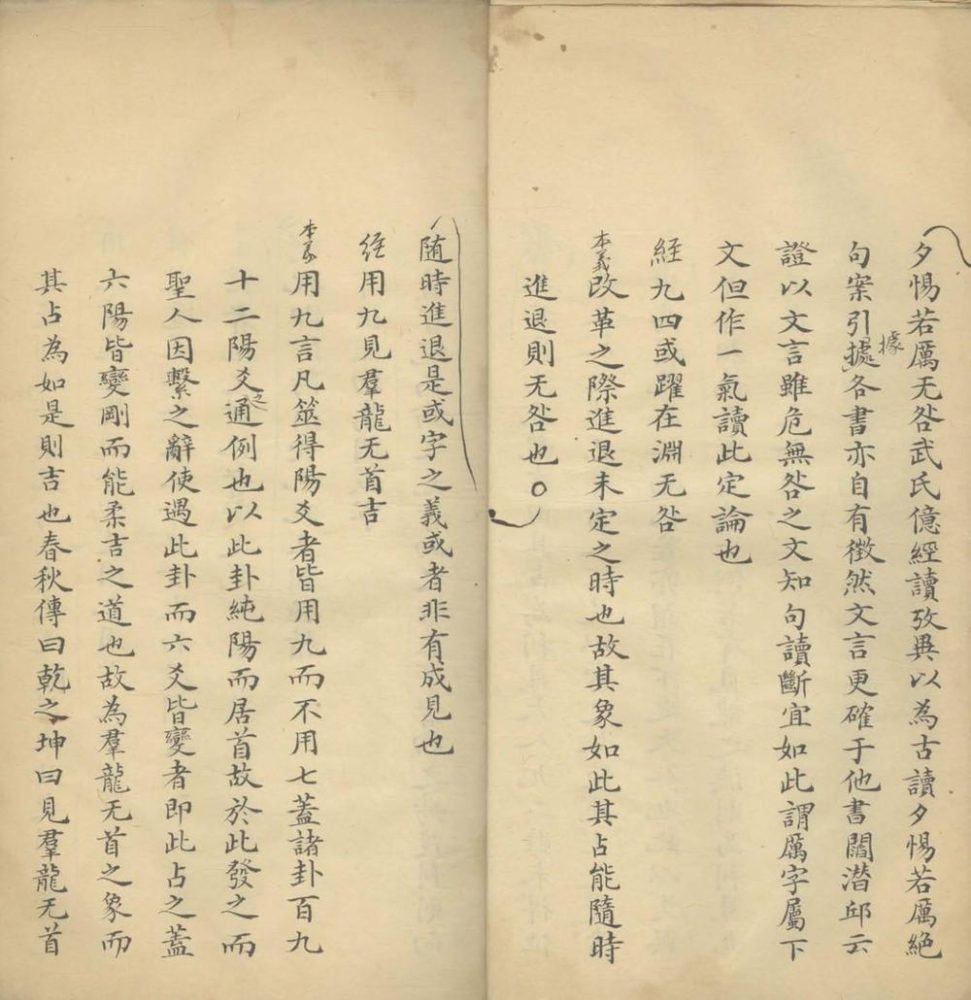 夕惕若厲无咎武氏億經讀攷異以為古讀夕惕若厲絕
句案引據各書亦自有徵然文言更確于他書閻潛邱云
據
證以文言雖危無咎之文知句讀斷宜如此謂厲字屬下
文但作一氣讀此定論也
經九四或躍在淵无咎
本義改革之際進退未定之時也故其象如此其占能隨時
進退則无咎也○
隨時進退是或字之義或者非有成見也
經用九見羣龍无首吉
本義用九言凡筮得陽爻者皆用九而不用七蓋諸卦百九
十二陽爻之通例也以此卦純陽而居首故於此發之而
聖人因繫之辭使遇此卦而六爻皆變者即此占之蓋
六陽皆變剛而能柔吉之道也故為羣龍无首之象而
其占為如是則吉也春秋傳曰乾之坤曰見羣龍无首